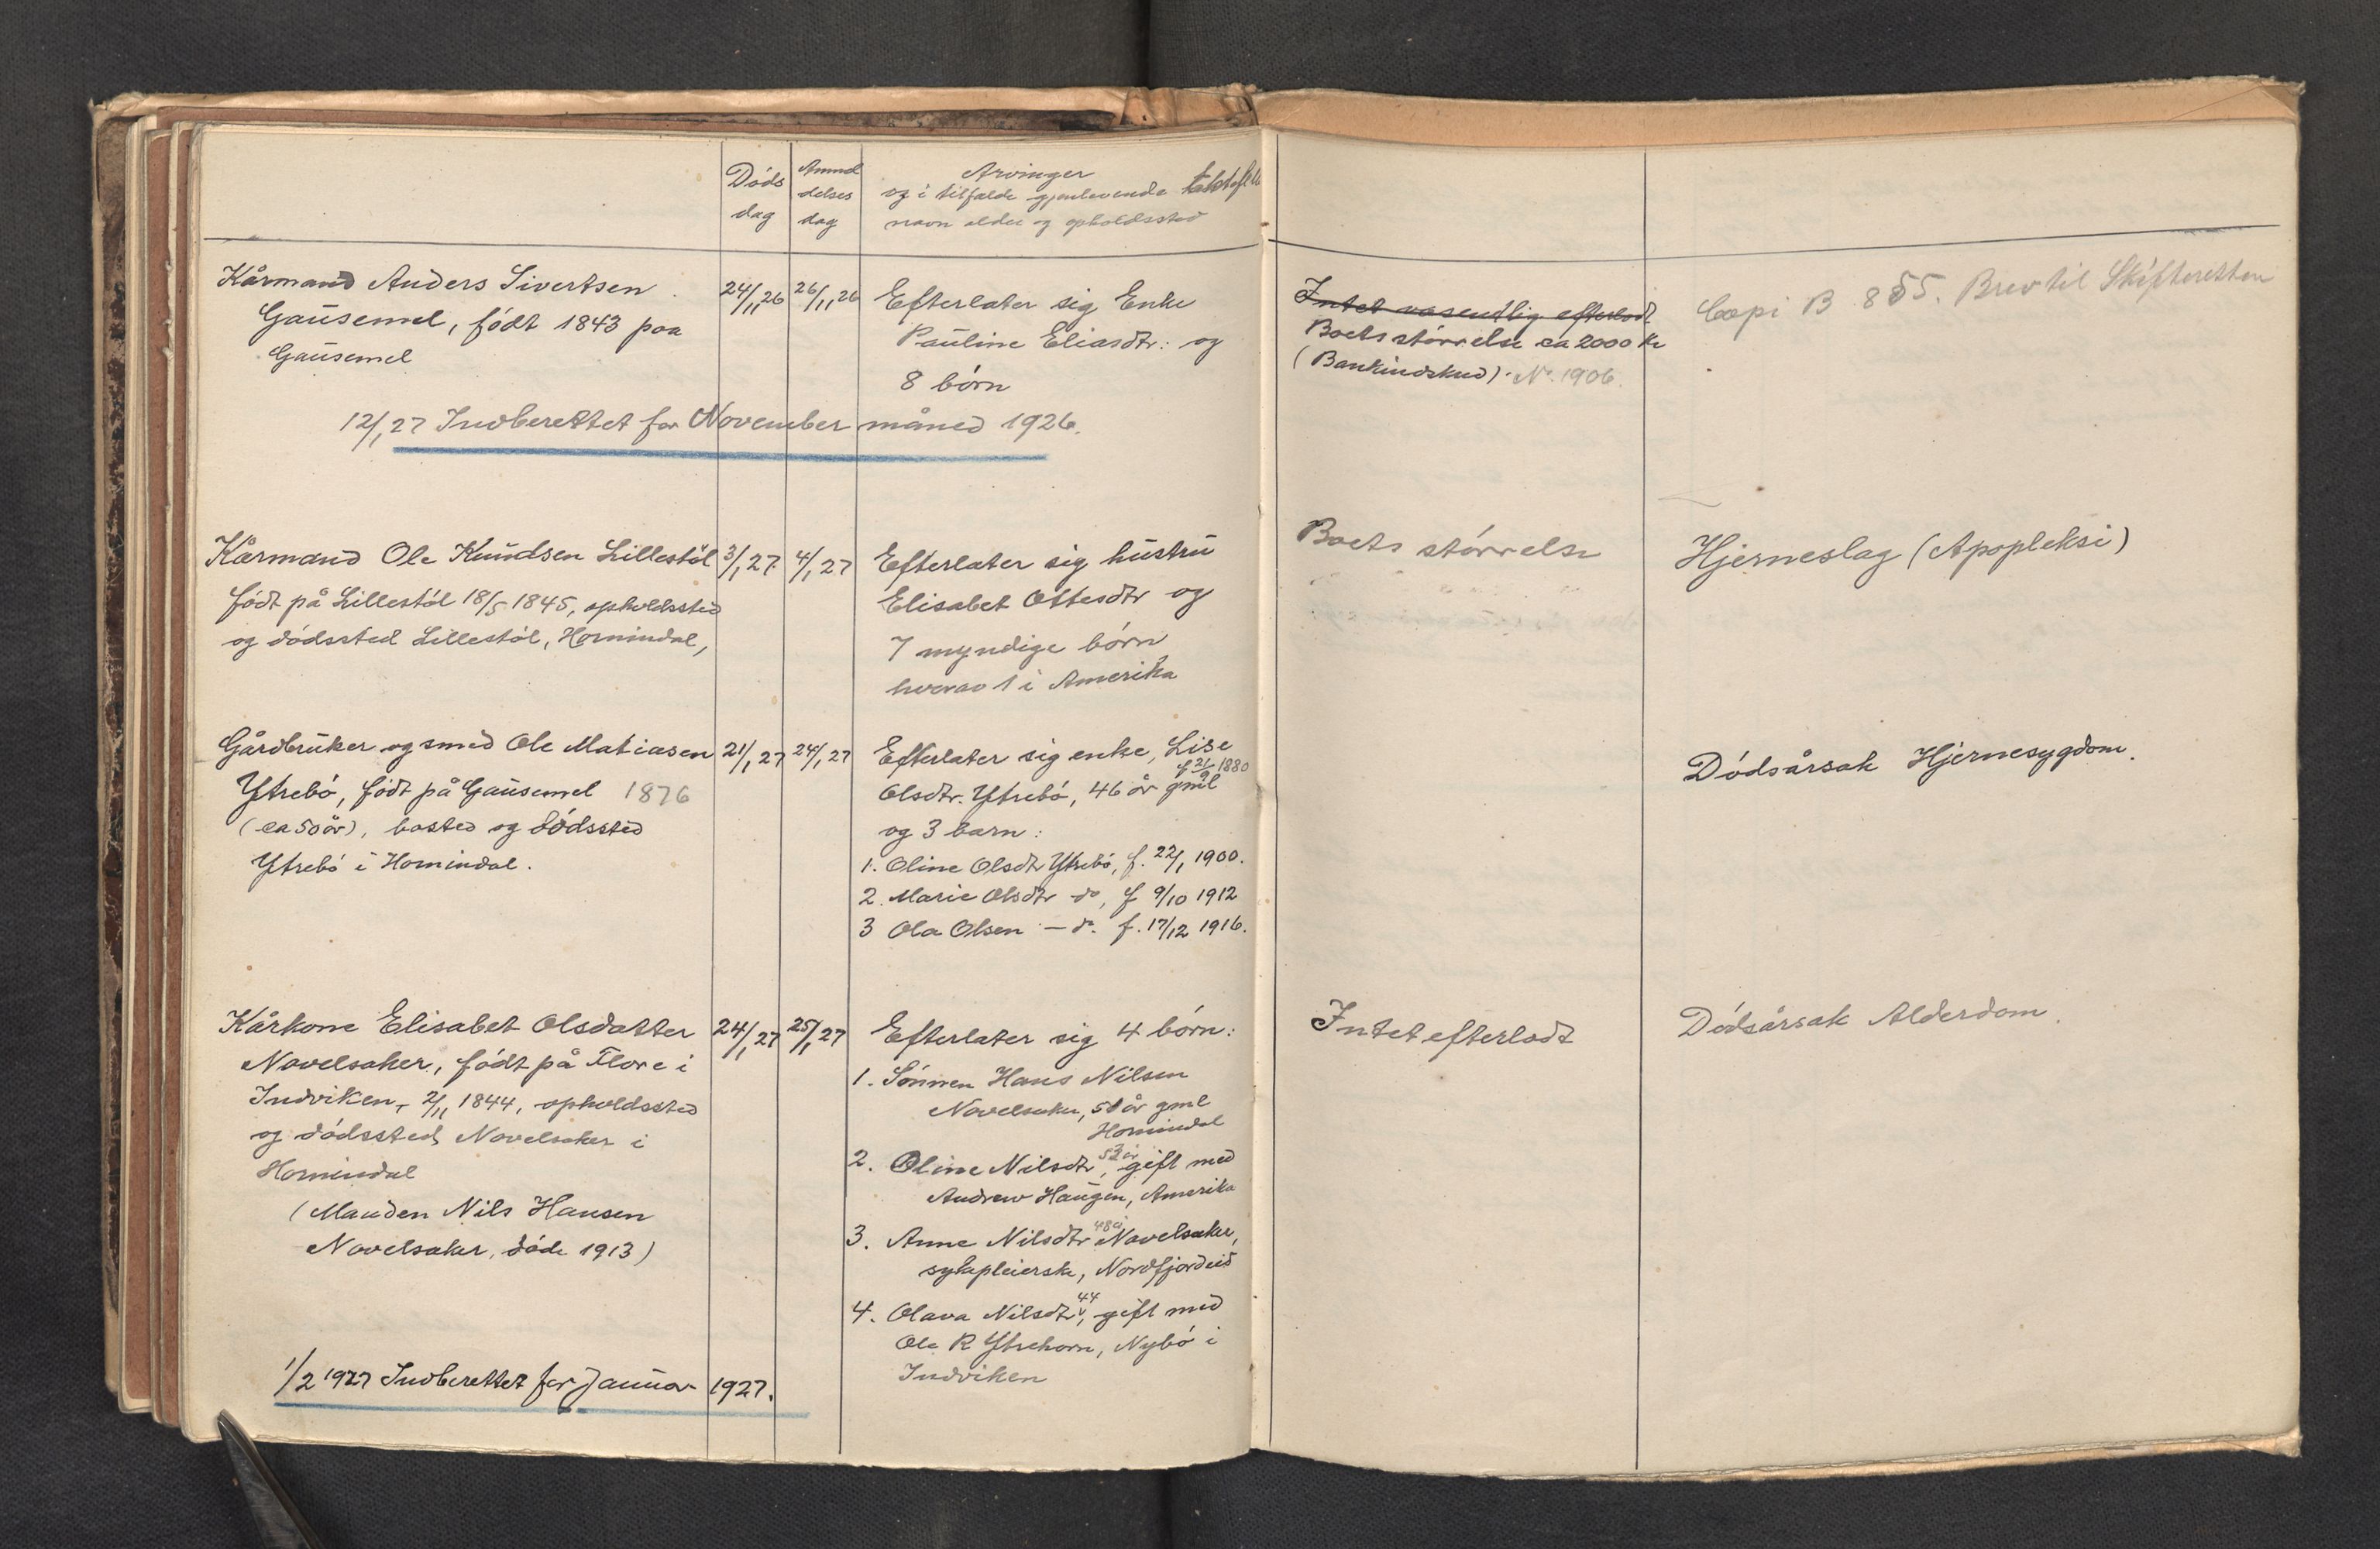 Döds
dag
Anmel
delses
dag
Arvinger
og i tilfælde gjenlevende
navn alder og opholdssted
Kårmand Anders Sivertsen
Gausemel, födt 1843 paa
Gausemel
24/11 26
26/11 26
Efterlater sig Enke
Pauline Eliasdtr: og
8 börn
Intet væsentlig efterladt
Boets störrelse ca 2000 kr
(Bankindskud). No. 1906.
Copi B 855. Brev til Skifteretten
12/1 27 Indberettet for November måned 1926.
Kårmand Ole Knudsen Lillestöl
födt på Lillestöl 18/5 1845, opholdssted
og dödssted Lillestöl, Hornindal,
3/1 27
4/1 27
Efterlater sig hustru
Elisabet Ottesdtr og
7 myndige börn
hvorav 1 i Amerika
Boets störrelse
Hjerneslag (Apopleksi)
Gårdbruker og smed Ole Matiasen
Ytrebö, födt på Gausemel 1876
(ca 50 år), bosted og dödssted
Ytrebö i Hornindal.
21/1 27
24/1 27
Efterlater sig enke, Lise
f 21/9 1880
Olsdtr. Ytrebö, 46 år gml
og 3 barn:
1. Oline Olsdtr Ytrebö, f. 22/1 1900.
2. Marie Olsdtr do, f 9/10 1912
3 Ola Olsen - do. f. 17/12 1916.
Dödsårsak Hjernesygdom.
Kårkone Elisabet Olsdatter
Navelsaker, födt på Flore i
Indviken, 2/11 1844, opholdssted
og dödssted Navelsaker i
Hornindal
(Manden Nils Hansen
Navelsaker, döde 1913)
24/1 27
25/1 27
Efterlater sig 4 börn:
1. Sönnen Hans Nilsen
Navelsaker, 51 år gml
Hornindal
2. Oline Nilsdtr, 53 år gift med
Andrew Haugen, Amerika
3. Anne Nilsdtr 48 å Navelsaker,
sykepleierske, Nordfjordeid
4. Olava Nilsdtr, 44 gift med
Ole R Ytrehorn, Nybö i
Indviken
Intet efterladt
Dödsårsak Alderdom.
1/2 1927 Indberettet for Januar 1927.